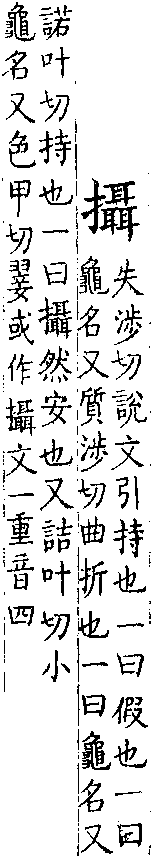 攝失涉切說文引持也一曰假也一曰
龜名又質涉切曲折也一曰龜名又
諾叶切持也一曰攝然安也又詰叶切小
龜名又色甲切翣或作攝文一重音四